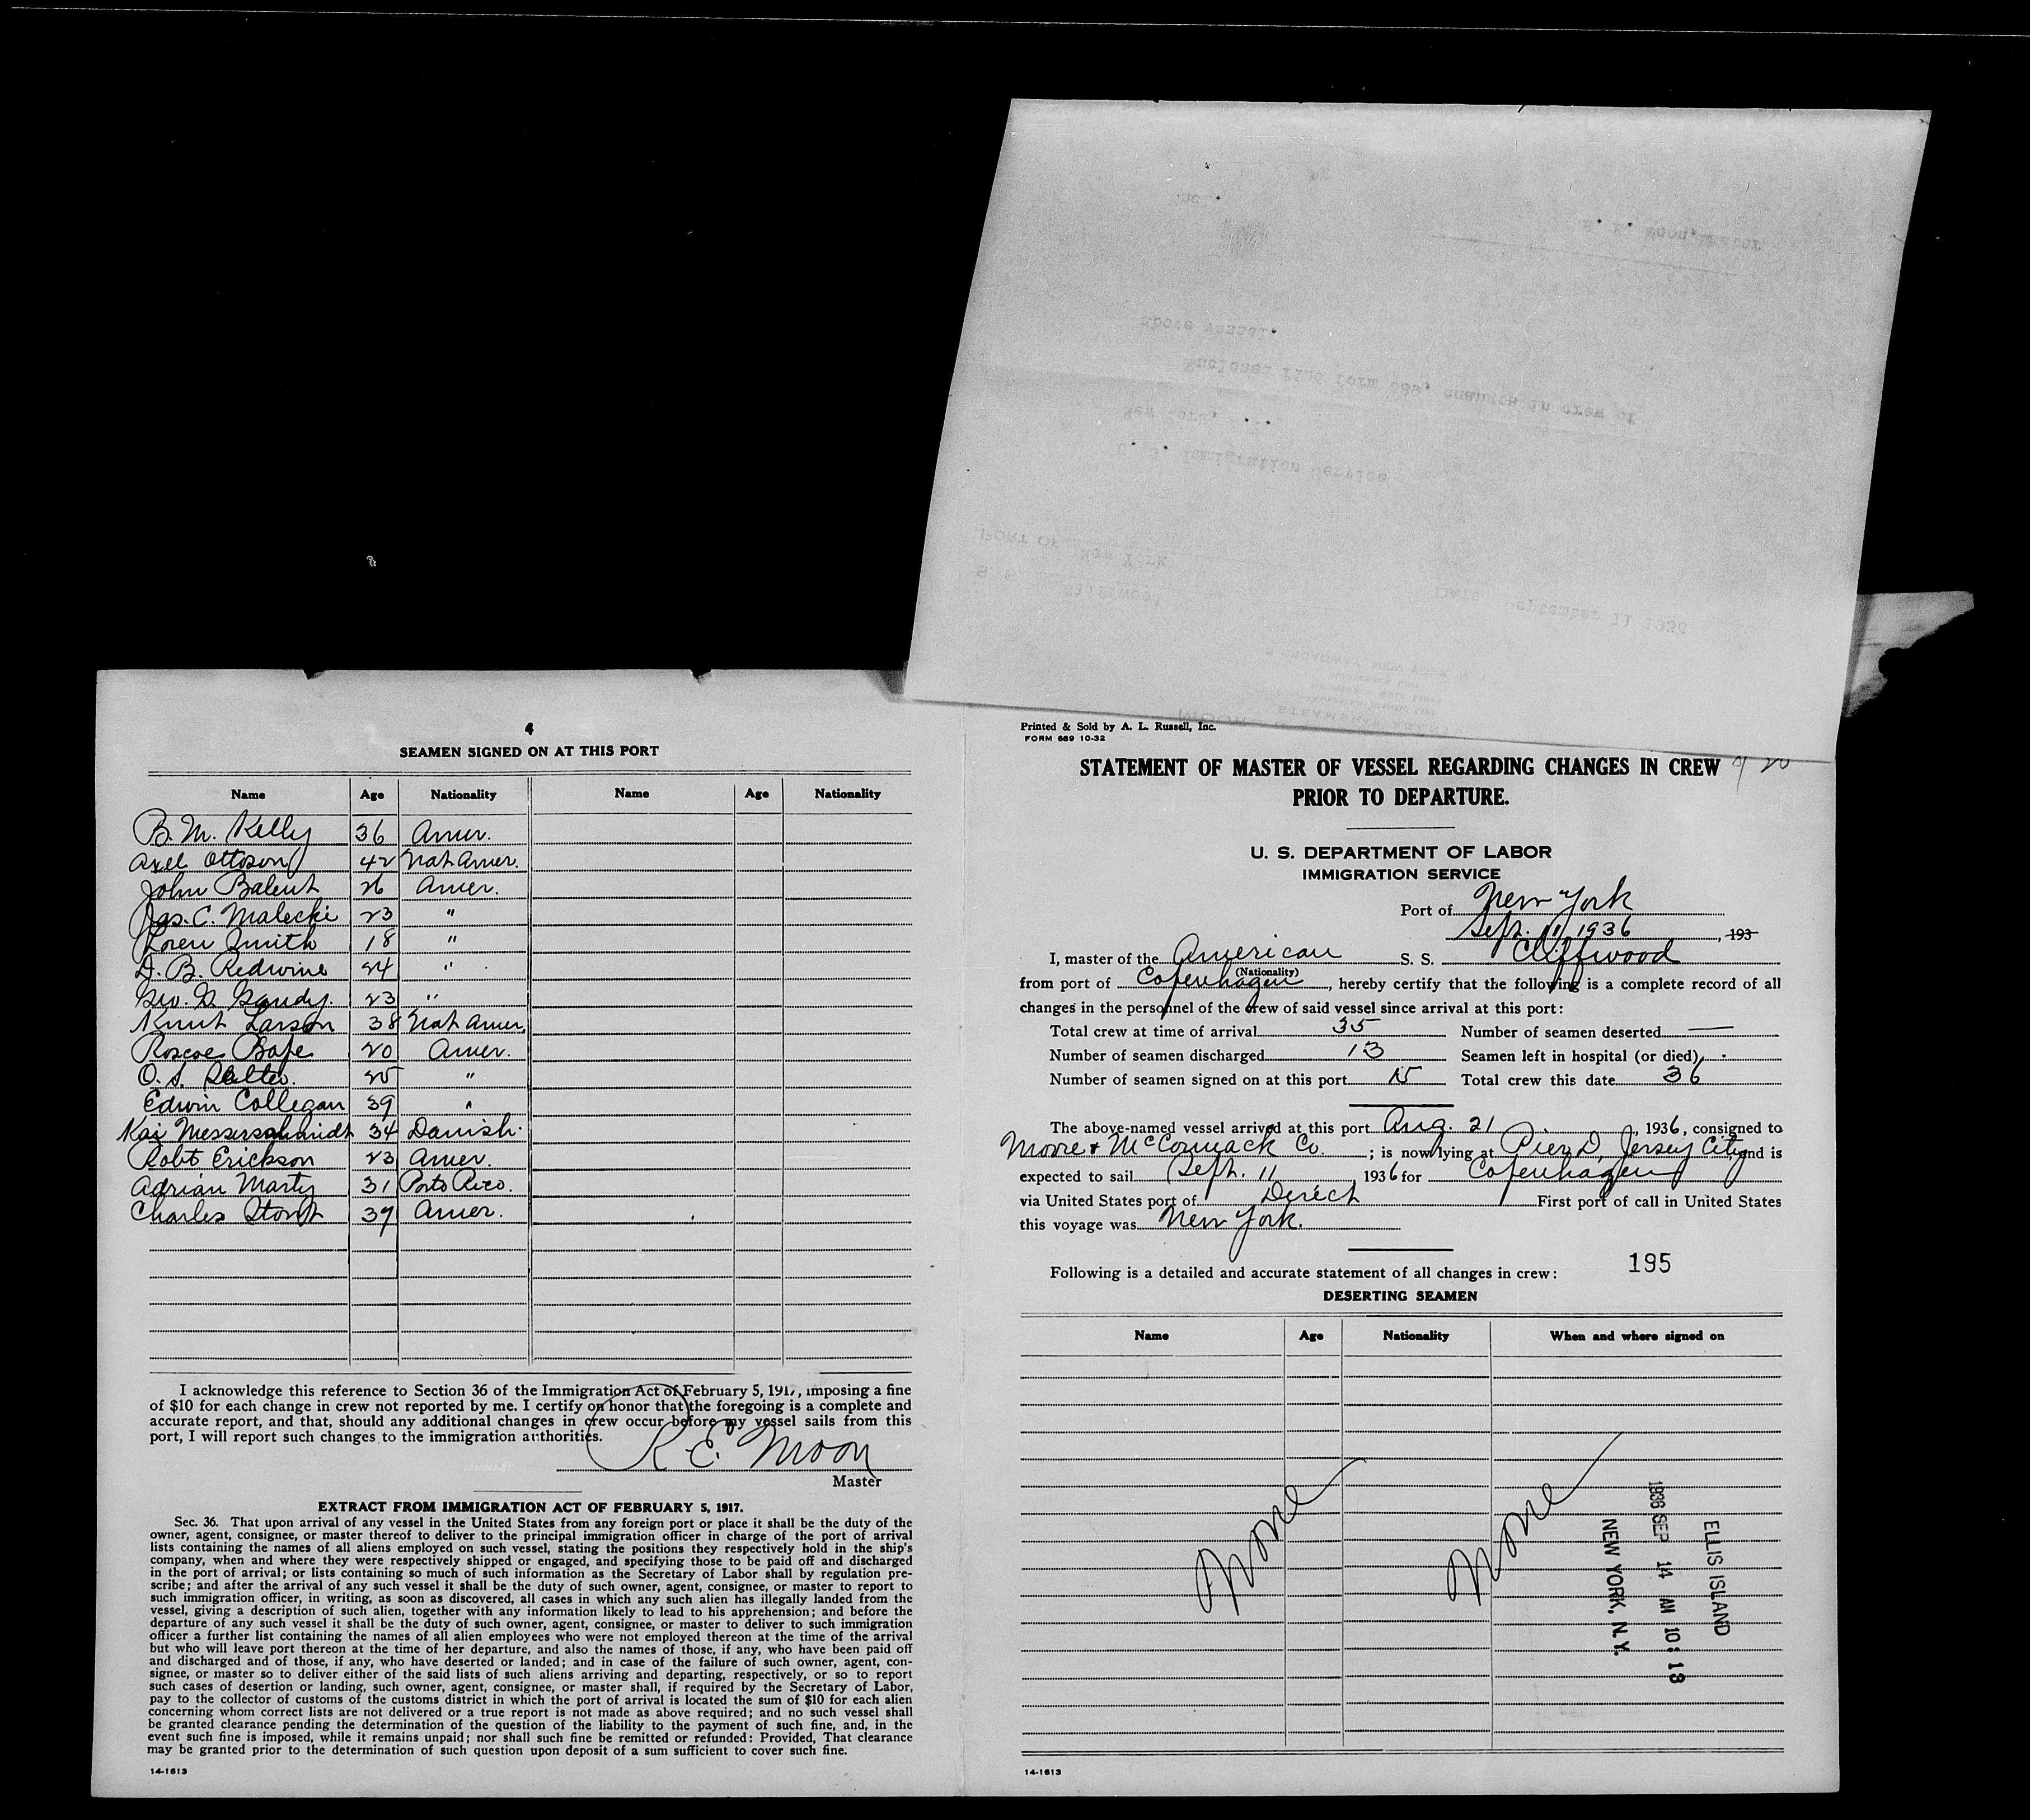 4
SEAMEN SIGNED ON AT THIS PORT
Name Age Nationality Name Age Nationality
B. M. Kelly 36 Amer.
Axel Ottoson 42 Nat Amer.
John Balent 26 Amer.
Jas. C. Malecki 23 "
Loren Smith 18 "
D. B. Redwine 24 "
Geo. D. Gandy. 23 "
Knut Larson 38 Nat Amer
Roscoe 20 Amer.
O. S. 25 "
Edwin Collegan 39 "
Kai Messerschmidt 34 Danish.
Robt Erickson 23 Amer.
Adrian Marty 31 Porto Rico.
Charles Stout 37 Amer.
I acknowledge this reference to Section 36 of the Immigration Act of February 5, 1917, imposing a fine
of $10 for each change in crew not reported by me. I certify on honor that the foregoing is a complete and
accurate report, and that, should any additional changes in crew occur before my vessel sails from this
port, I will report such changes to the immigration authorities.
R E Moon
Master
EXTRACT FROM IMMIGRATION ACT OF FEBRUARY 5, 1917.
Sec. 36. That upon arrival of any vessel in the United States from any foreign port or place it shall be the duty of the
owner, agent, consignee, or master thereof to deliver to the principal immigration officer in charge of the port of arrival
lists containing the names of all aliens employed on such vessel, stating the positions they respectively hold in the ship's
company, when and where they were respectively shipped or engaged, and specifying those to be paid off and discharged
in the port of arrival; or lists containing so much of such information as the Secretary of Labor shall by regulation pre-
scribe; and after the arrival of any such vessel it shall be the duty of such owner, agent, consignee, or master to report to
such immigration officer, in writing, as soon as discovered, all cases in which any such alien has illegally landed from the
vessel, giving a description of such alien, together with any information likely to lead to his apprehension; and before the
departure of any such vessel it shall be the duty of such owner, agent, consignee, or master to deliver to such immigration
officer a further list containing the names of all alien employees who were not employed thereon at the time of the arrival
but who will leave port thereon at the time of her departure, and also the names of those, if any, who have been paid off
and discharged and of those, if any, who have deserted or landed; and in case of the failure of such owner, agent, con-
signee, or master so to deliver either of the said lists of such aliens arriving and departing, respectively, or so to report
such cases of desertion or landing, such owner, agent, consignee, or master shall, if required by the Secretary of Labor,
pay to the collector of customs of the customs district in which the port of arrival is located the sum of $10 for each alien
concerning whom correct lists are not delivered or a true report is not made as above required; and no such vessel shall
be granted clearance pending the determination of the question of the liability to the payment of such fine, and, in the
event such fine is imposed, while it remains unpaid; nor shall such fine be remitted or refunded: Provided, That clearance
may be granted prior to the determination of such question upon deposit of a sum sufficient to cover such fine.
14-1613
R. E. Moon, Master
above vessel.
Enclosed find form 689, changes in crew of
New York,
U. S. Immigration Service
PORT OF New York
S. S. Cliffwood DATE September 11 1936
BROADWAY, NEW YORK N.Y.
Printed & Sold by A. L. Russell, Inc.
FORM 689 10-32
STATEMENT OF MASTER OF VESSEL REGARDING CHANGES IN CREW
PRIOR TO DEPARTURE.
U. S. DEPARTMENT OF LABOR
IMMIGRATION SERVICE
Port of New York
Sept. 11/1936, 193
I, master of the American S. S. Cliffwood
(Nationality)
from port of Copenhagen, hereby certify that the following is a complete record of all
changes in the personnel of the crew of said vessel since arrival at this port:
Total crew at time of arrival 35 Number of seamen deserted —
Number of seamen discharged 13 Seamen left in hospital (or died)
Number of seamen signed on at this port 15 Total crew this date 36
The above-named vessel arrived at this port Aug. 21 1936, consigned to
Moore & McCormack Co.; is now lying at Pier D, Jersey City and is
expected to sail Sept. 11 1936 for Copenhagen
via United States port of Direct First port of call in United States
this voyage was New York.
195
Following is a detailed and accurate statement of all changes in crew:
DESERTING SEAMEN
Name Age Nationality When and where signed on
None None
ELLIS ISLAND
1936 SEP 14 AM 10:13
NEW YORK, N.Y.
14-1613